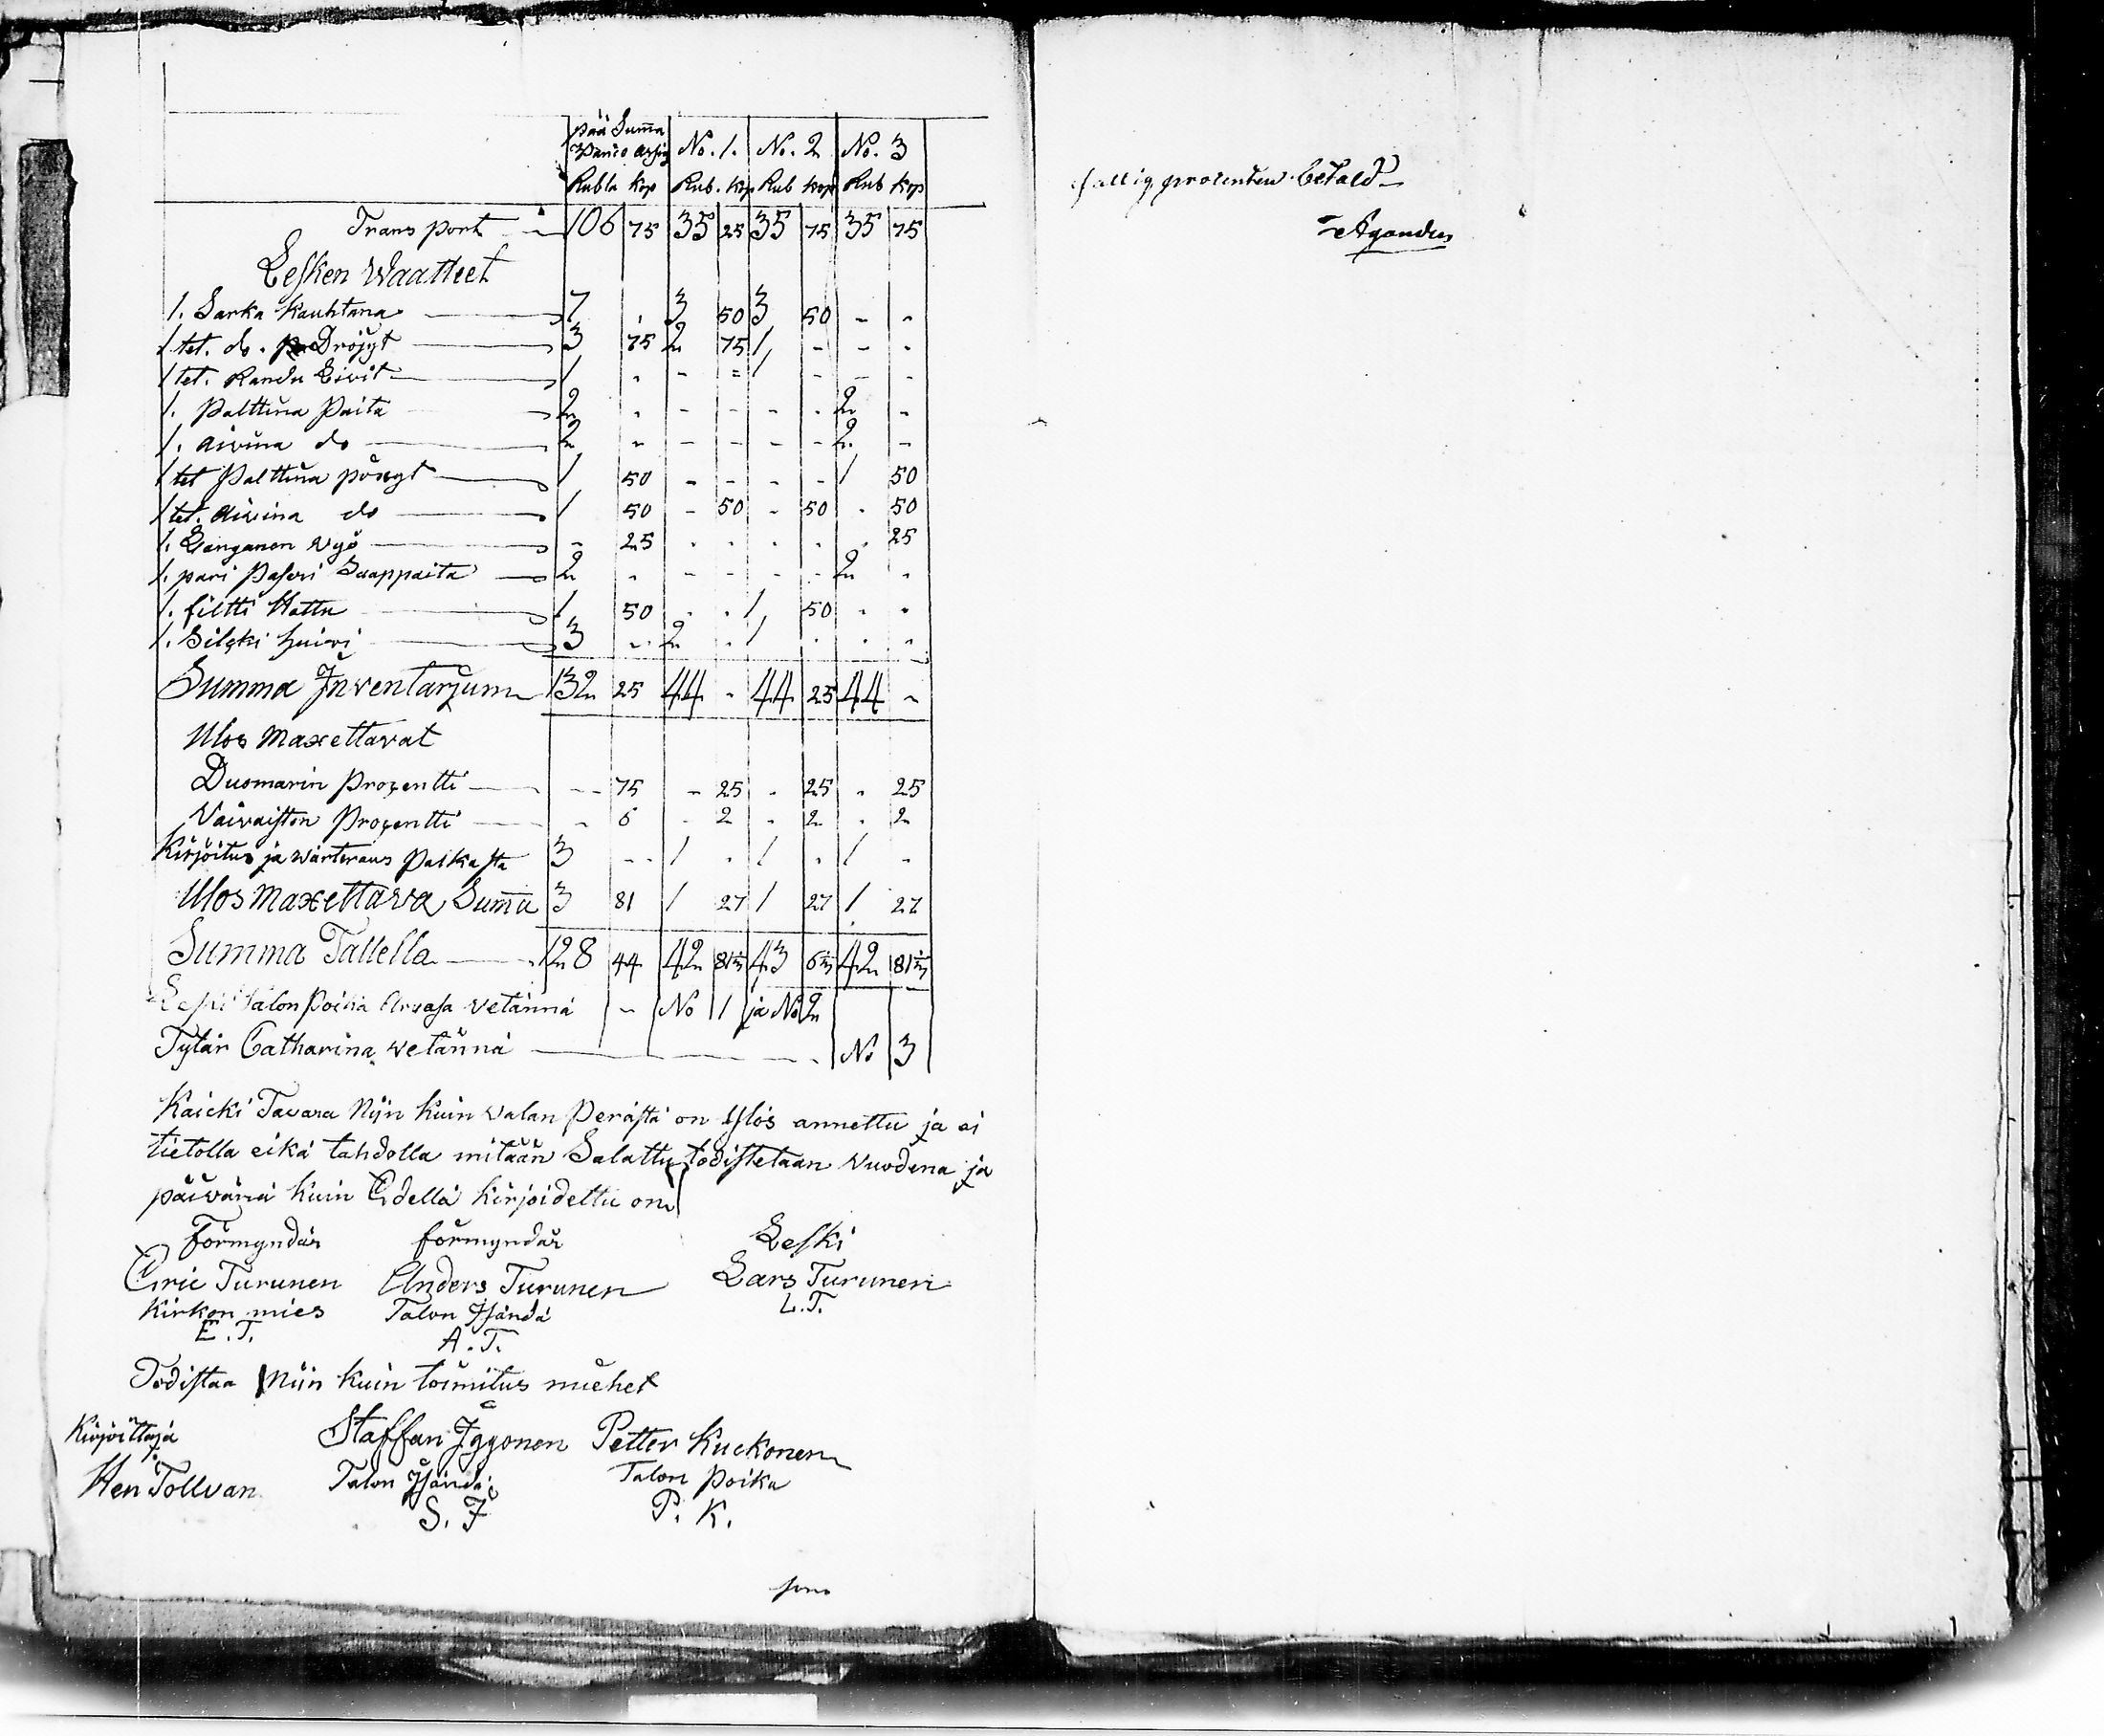 pää Sum̄a No. 1. No. 2 No. 3
Rubla kop Rub. kop Rub kop Rub kop
Transport 106 75 35 25 35 75 35 75
Lesken Waatteet
1. Sarka Kauhtana 7 . 3 50 3 50 - -
1 tet. do. Dröjyt 3 75 2 75 1 - - -
1 tet. Randu Livit 1 . - = 1 - - -
1. Palttina Paita 2 . - - - . 2 -
1. aivina do 2 - - - - - 2. -
1 tet Palttina pöxyt 1 50 - - - - 1 50
1 tet. aivina do 1 50 - 50 - 50 . 50
1. Langanen vyö - 25 . . . . . 25
1. pari Pasori Saappaita 2 . - - - - 2 .
1. filtti Hattu 1 50 . . 1 50 . .
1. Silcki huivi 3 - 2 . 1 . . .
Summa Inventarjum 132 25 44 - 44 25 44 -
Ulos Maxettavat
Duomarin Prozentti - 75 - 25 . 25 . 25
Vaivaisten Prozentti - 6 - 2 - 2 . 2
Kirjoitus ja wärteraus Palkasta 3 - 1 . 1 . 1 -
Ulos Maxettava Sum̄a 3 81 1 27 1 27 1 27
Summa Tallella 128 44 42 81⅓ 43 6⅓ 42 81⅓
Leski Talon Poika Arvasa vetännä - No 1 ja No 2
Tytär Catharina vetännä No 3
Kaicki Tavara Nijn Kuin valan Perästä on Ylös annettu ja ei
tietolla eikä tahdolla mitään Salattu todistetaan Vuodena ja
päivänä Kuin Edellä Kirjoidettu on
förmyndär förmyndär Leski
Eric Turunen Anders Turunen Lars Turunen
Kirkon mies Talon Isändä L.T.
E.T. A.T.
Todistaa Niin Kuin toimitus miehet
Kirjoittaja Staffan Iyyonen Petter Kuckonen
Hen Tollvan Talon Isändä Talon Poika
S. I P. K.
fallig procenten betald